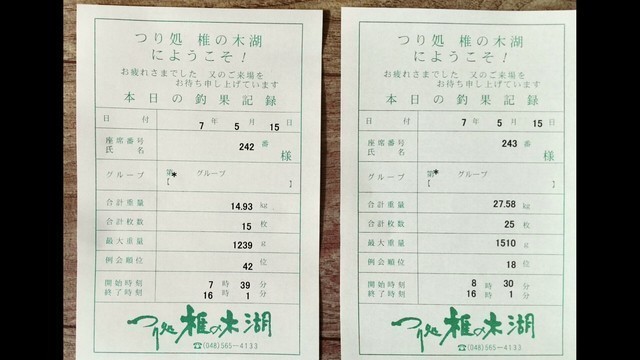 つり処 椎の木湖
にようこそ！
お疲れさまでした 又のご来場を
お待ち申し上げています
本日の釣果記録
日付 7年 5月 15日
座席番号 242 番
氏名 様
グループ 第* グループ
【 】
合計重量 14.93 kg
合計枚数 15 枚
最大重量 1239 g
例会順位 42 位
開始時刻 7時 39分
終了時刻 16時 1分
つり処 椎の木湖
☎(048)565-4133
つり処 椎の木湖
にようこそ！
お疲れさまでした 又のご来場を
お待ち申し上げています
本日の釣果記録
日付 7年 5月 15日
座席番号 243 番
氏名 様
グループ 第* グループ
【 】
合計重量 27.58 kg
合計枚数 25 枚
最大重量 1510 g
例会順位 18 位
開始時刻 8時 30分
終了時刻 16時 1分
つり処 椎の木湖
☎(048)565-4133